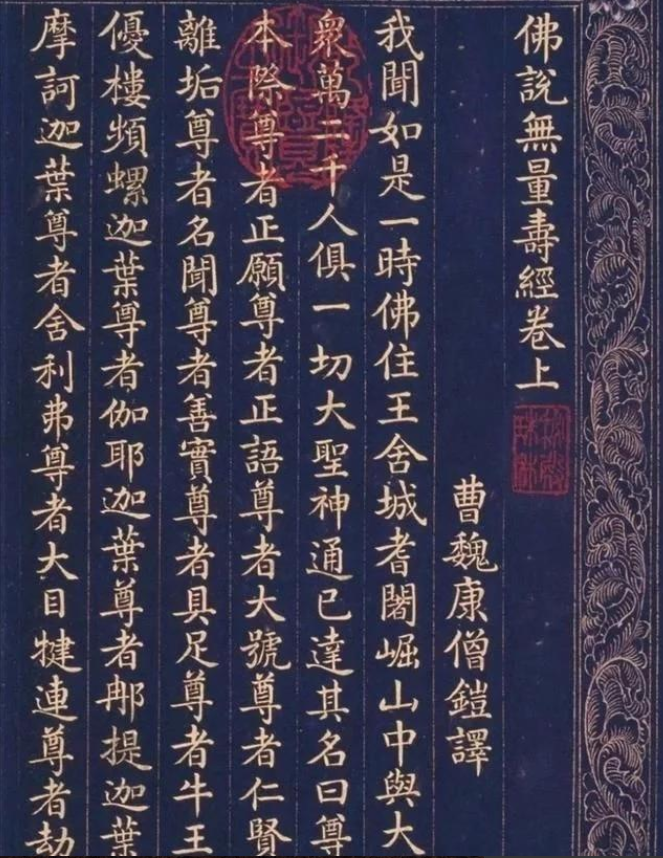 佛說無量壽經卷上
曹魏康僧鎧譯
我聞如是一時佛住王舍城耆闍崛山中與大
眾萬二千人俱一切大聖神通已達其名曰尊
本際尊者正願尊者正語尊者大號尊者仁賢
離垢尊者名聞尊者善實尊者具足尊者牛王
優樓頻螺迦葉尊者伽耶迦葉尊者那提迦葉
摩訶迦葉尊者舍利弗尊者大目犍連尊者劫